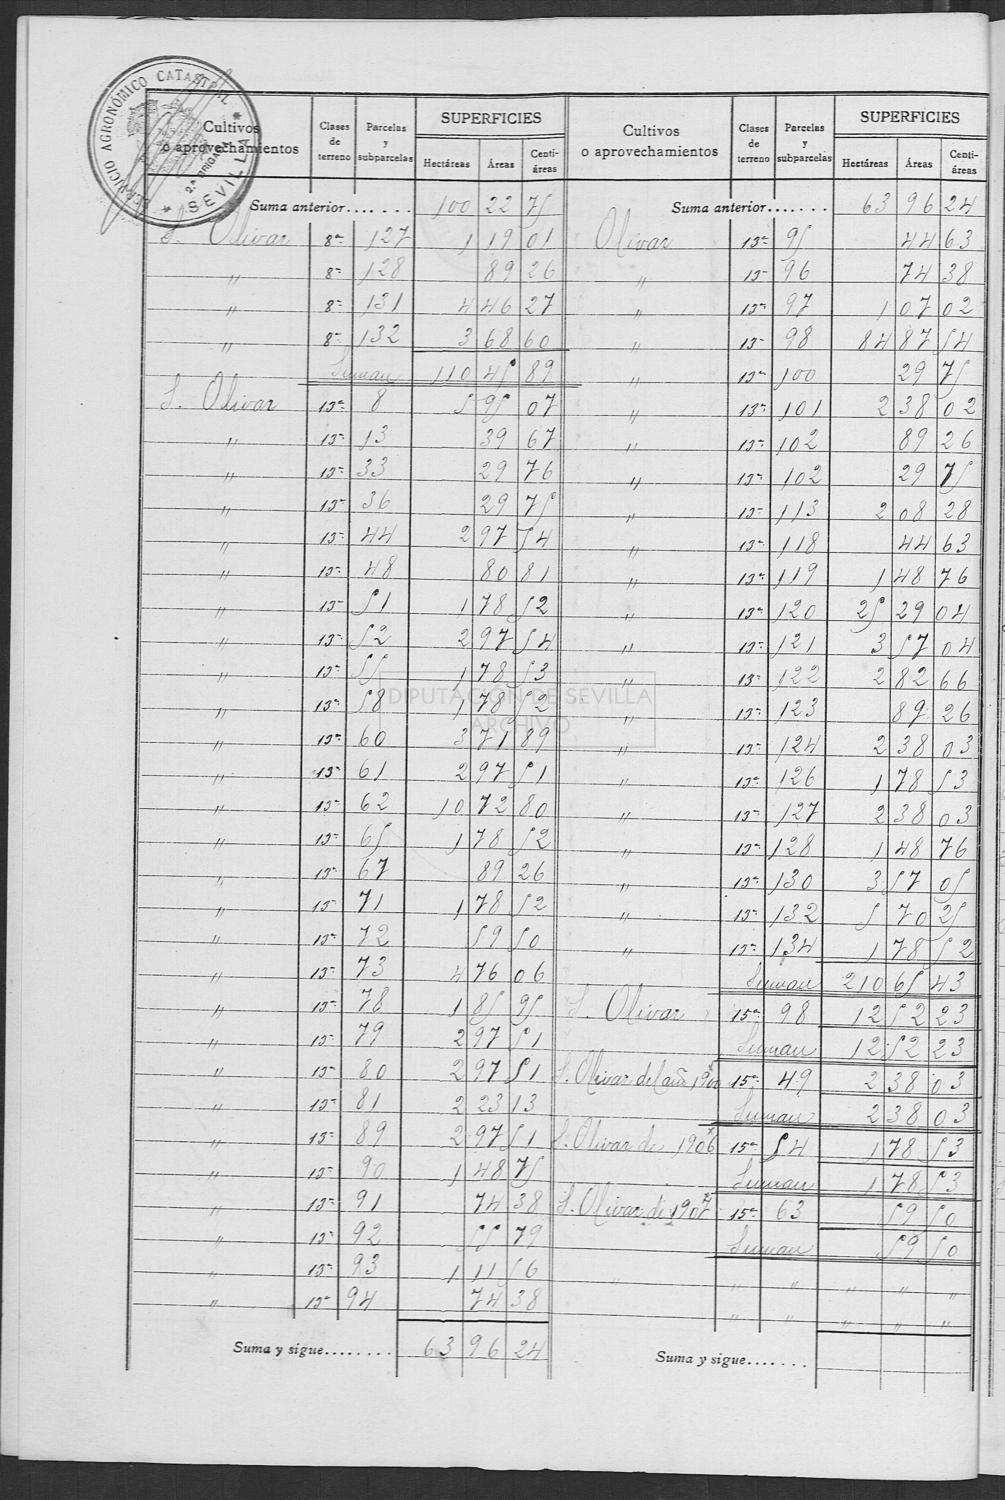 SERVICIO AGRONÓMICO CATASTRAL
2.ª BRIGADA
SEVILLA
Cultivos o aprovechamientos | Clases de terreno | Parcelas y subparcelas | SUPERFICIES Hectáreas | Áreas | Centiáreas
Suma anterior....... 100 22 75
S. Olivar 8ª 127 1 19 01
" 8ª 128 89 26
" 8ª 131 4 46 27
" 8ª 132 3 68 60
Suman 110 45 89
S. Olivar 13ª 8 5 95 07
" 13ª 13 39 67
" 13ª 33 29 76
" 13ª 36 29 75
" 13ª 44 2 97 54
" 13ª 48 80 81
" 13ª 51 1 78 52
" 13ª 52 2 97 54
" 13ª 55 1 78 53
" 13ª 58 1 78 52
" 13ª 60 3 71 89
" 13ª 61 2 97 51
" 13ª 62 10 72 80
" 13ª 65 1 78 52
" 13ª 67 89 26
" 13ª 71 1 78 52
" 13ª 72 59 50
" 13ª 73 4 76 06
" 13ª 78 1 85 95
" 13ª 79 2 97 51
" 13ª 80 2 97 51
" 13ª 81 2 23 13
" 13ª 89 2 97 51
" 13ª 90 1 48 75
" 13ª 91 74 38
" 13ª 92 55 79
" 13ª 93 1 11 56
" 13ª 94 74 38
Suma y sigue........ 63 96 24
Cultivos o aprovechamientos | Clases de terreno | Parcelas y subparcelas | SUPERFICIES Hectáreas | Áreas | Centiáreas
Suma anterior....... 63 96 24
Olivar 13ª 95 44 63
" 13ª 96 74 38
" 13ª 97 1 07 02
" 13ª 98 84 87 54
" 13ª 100 29 75
" 13ª 101 2 38 02
" 13ª 102 89 26
" 13ª 102 29 75
" 13ª 113 2 08 28
" 13ª 118 44 63
" 13ª 119 1 48 76
" 13ª 120 25 29 04
" 13ª 121 3 57 04
" 13ª 122 2 82 66
" 13ª 123 89 26
" 13ª 124 2 38 03
" 13ª 126 1 78 53
" 13ª 127 2 38 03
" 13ª 128 1 48 76
" 13ª 130 3 57 05
" 13ª 132 5 70 25
" 13ª 134 1 78 52
Suman 210 65 43
S. Olivar 15ª 98 12 52 23
Suman 12 52 23
S. Olivar del año 1900 15ª 49 2 38 03
Suman 2 38 03
S. Olivar de 1906 15ª 54 1 78 53
Suman 1 78 53
S. Olivar de 1907 15ª 63 59 50
Suman 59 50
" " " " "
" " " " "
Suma y sigue.......
DIPUTACIÓN DE SEVILLA
ARCHIVO